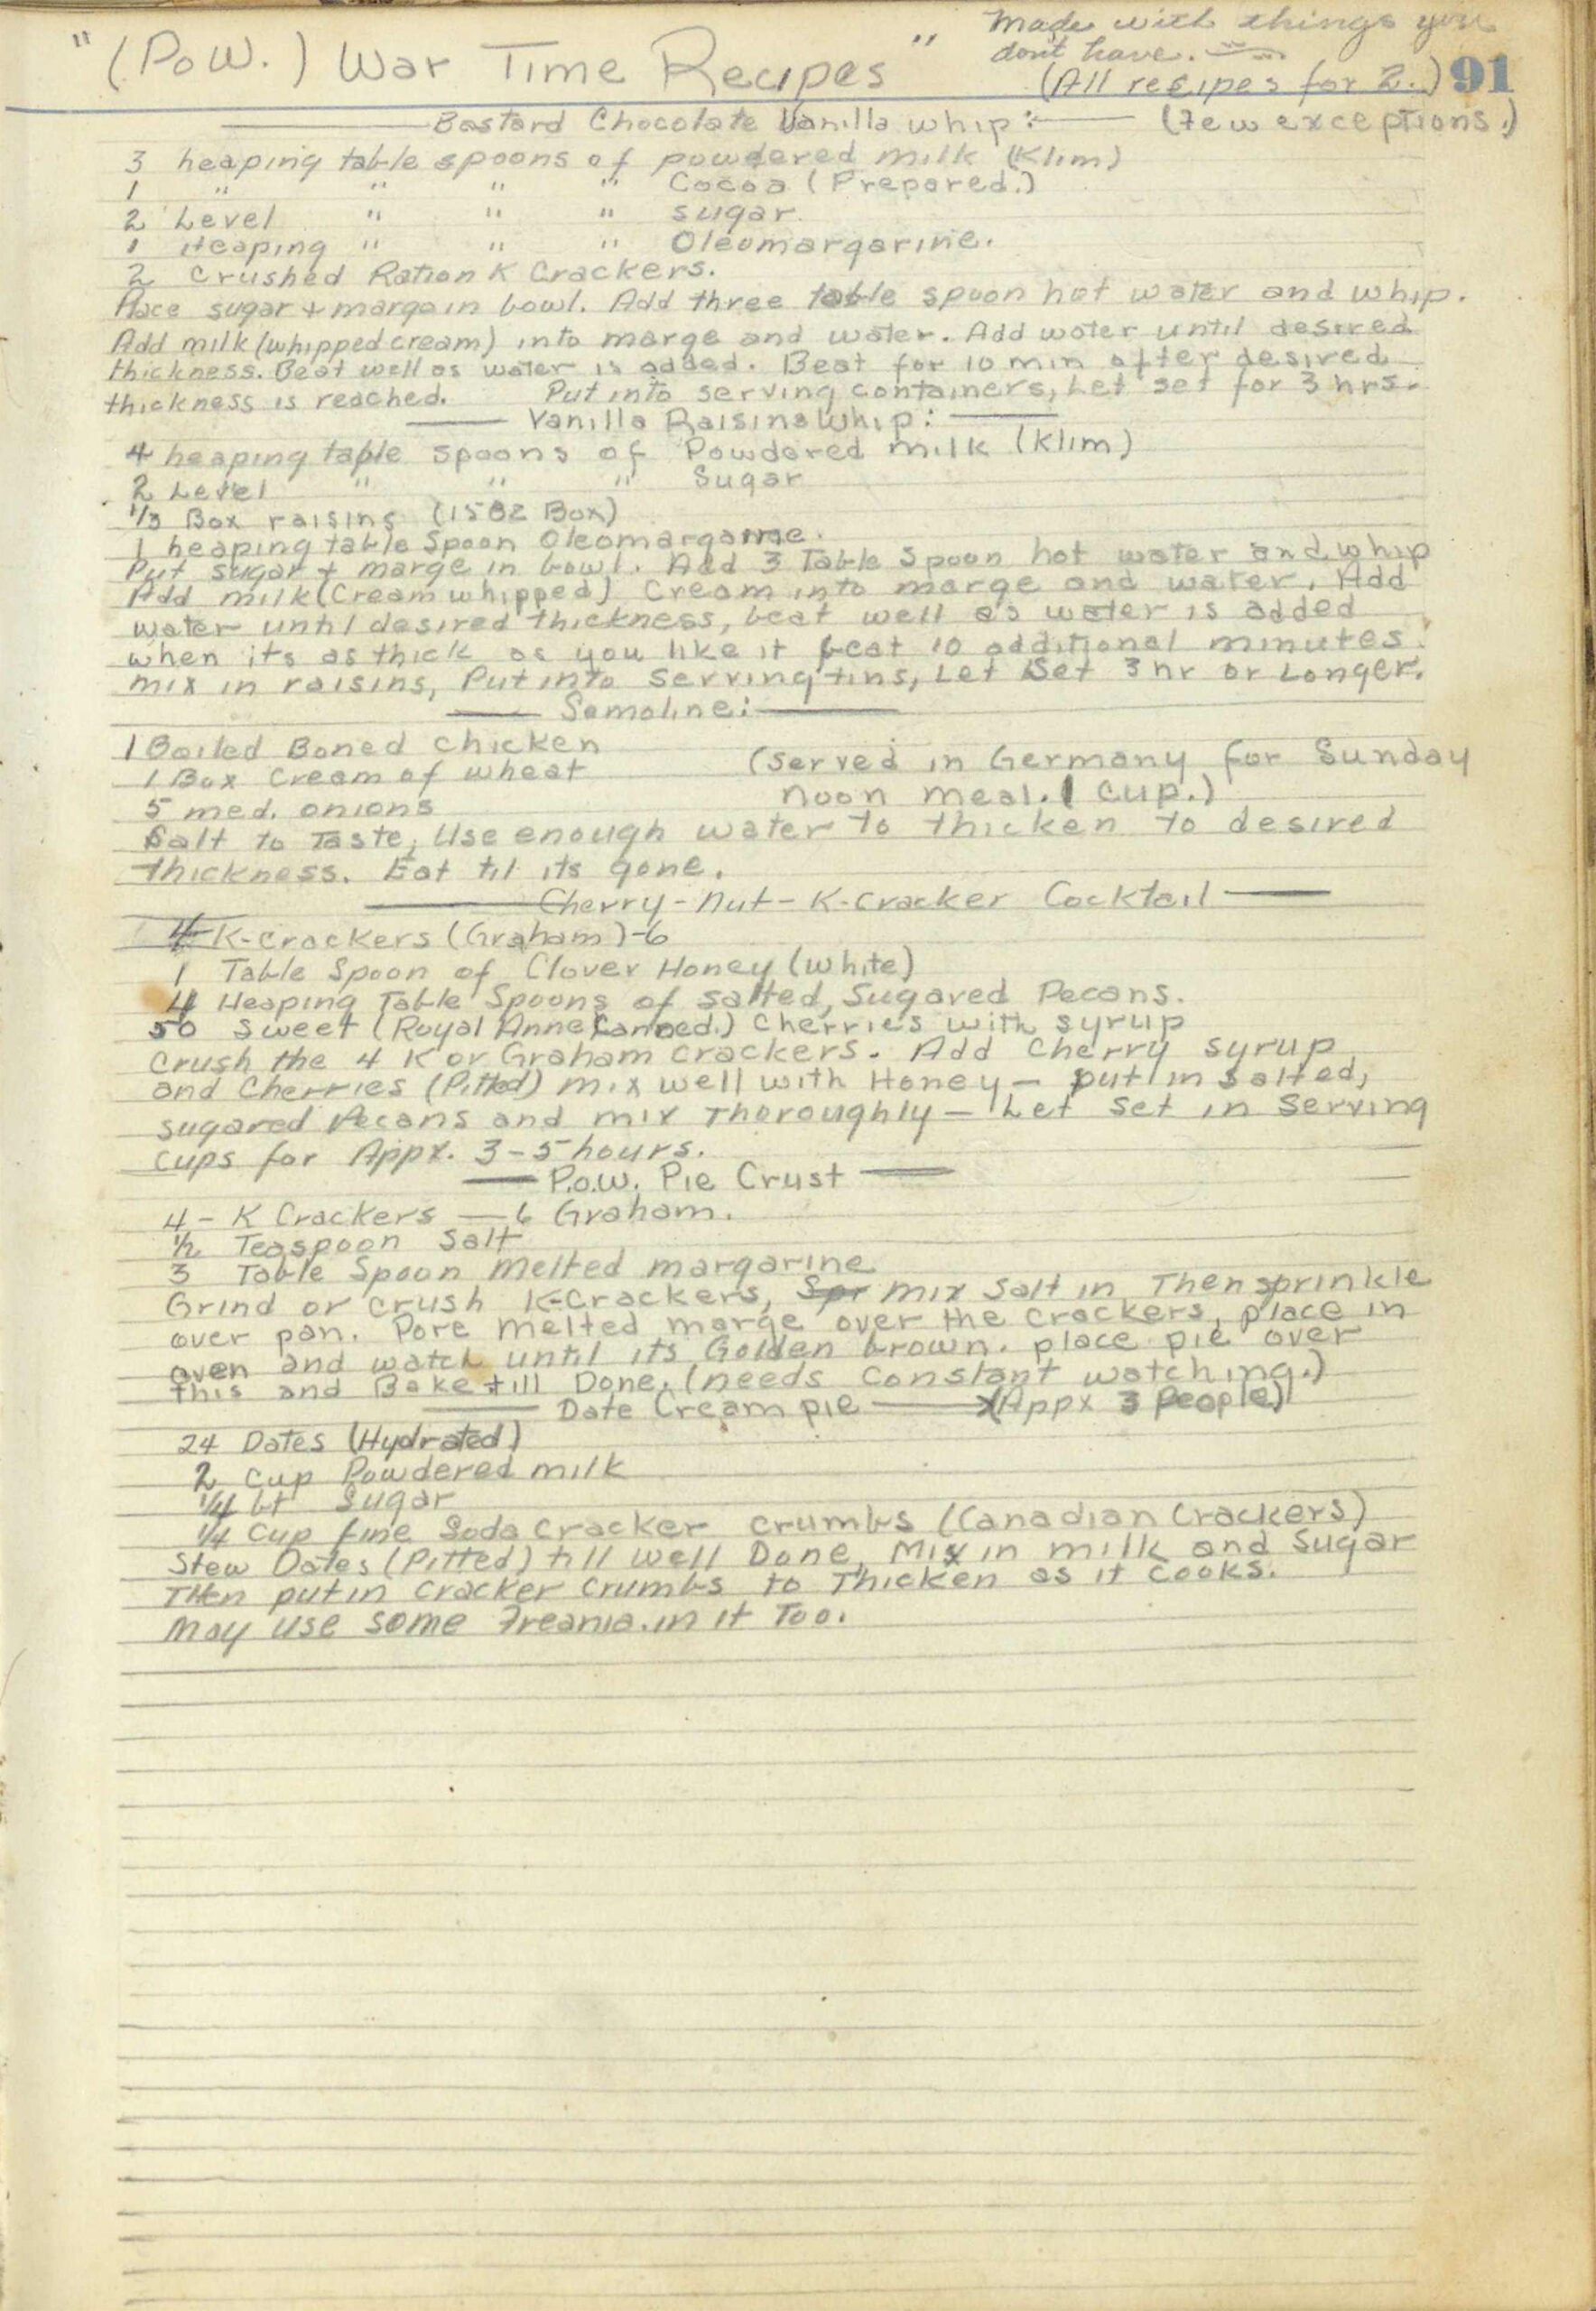 "(PoW.) War Time Recipes"
Made with things you
dont have.
(All recipes for 2.) 91
(Few exceptions.)
Bastard Chocolate Vanilla whip:
3 heaping table spoons of powdered milk (Klim)
1 " " " " Cocoa (Prepared.)
2 Level " " " sugar.
1 Heaping " " " Oleomargarine.
2 Crushed Ration K Crackers.
Place sugar + marge in bowl. Add three table spoon hot water and whip.
Add milk (whipped cream) into marge and water. Add water until desired
thickness. Beat well as water is added. Beat for 10 min after desired
thickness is reached. Put into serving containers, Let set for 3 hrs.
Vanilla Raisins Whip:
4 heaping table spoons of Powdered milk (Klim)
2 Level " " " Sugar
1/3 Box raisins (15 oz Box)
1 heaping table Spoon Oleomargarine.
Put sugar + marge in bowl. Add 3 Table Spoon hot water and whip
Add milk (Cream whipped) Cream into marge and water. Add
water until desired thickness, beat well as water is added
when its as thick as you like it beat 10 additional minutes.
mix in raisins, Put into serving tins, Let Set 3 hr or Longer.
Semoline:
1 Boiled Boned chicken
1 Box Cream of wheat
5 med. onions
(served in Germany for Sunday
noon meal. 1 Cup.)
Salt to Taste, Use enough water to thicken to desired
thickness. Eat til its gone.
Cherry-Nut-K-Cracker Cocktail
4 K-Crackers (Graham)-6
1 Table Spoon of Clover Honey (white)
4 Heaping Table Spoons of salted, Sugared Pecans.
50 sweet (Royal Anne Canned.) Cherries with syrup
Crush the 4 K or Graham crackers. Add Cherry syrup
and Cherries (Pitted) mix well with Honey - put in salted,
sugared Pecans and mix Thoroughly - Let set in Serving
cups for Appx. 3-5 hours.
P.o.w. Pie Crust
4 - K Crackers - 6 Graham.
1/2 Teaspoon Salt
3 Table Spoon Melted margarine
Grind or crush K-Crackers, Spr mix Salt in, Then sprinkle
over pan. Pore melted marge over the crackers, place in
oven and watch until its Golden brown. place pie over
this and Bake till Done. (needs constant watching.)
Date Cream pie (Appx 3 People)
24 Dates (Hydrated)
2 Cup Powdered milk
1/4 lb Sugar
1/4 Cup fine Soda Cracker crumbs (Canadian Crackers)
Stew Dates (Pitted) till well Done, Mix in milk and Sugar
Then put in Cracker Crumbs to Thicken as it cooks.
May use some in it Too.